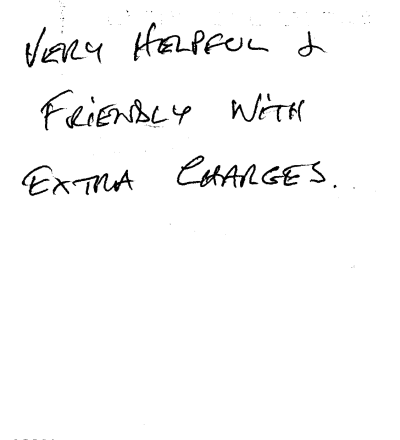 VERY HELPFUL &
FRiENDLY WiTH
EXTRA CHARGES.